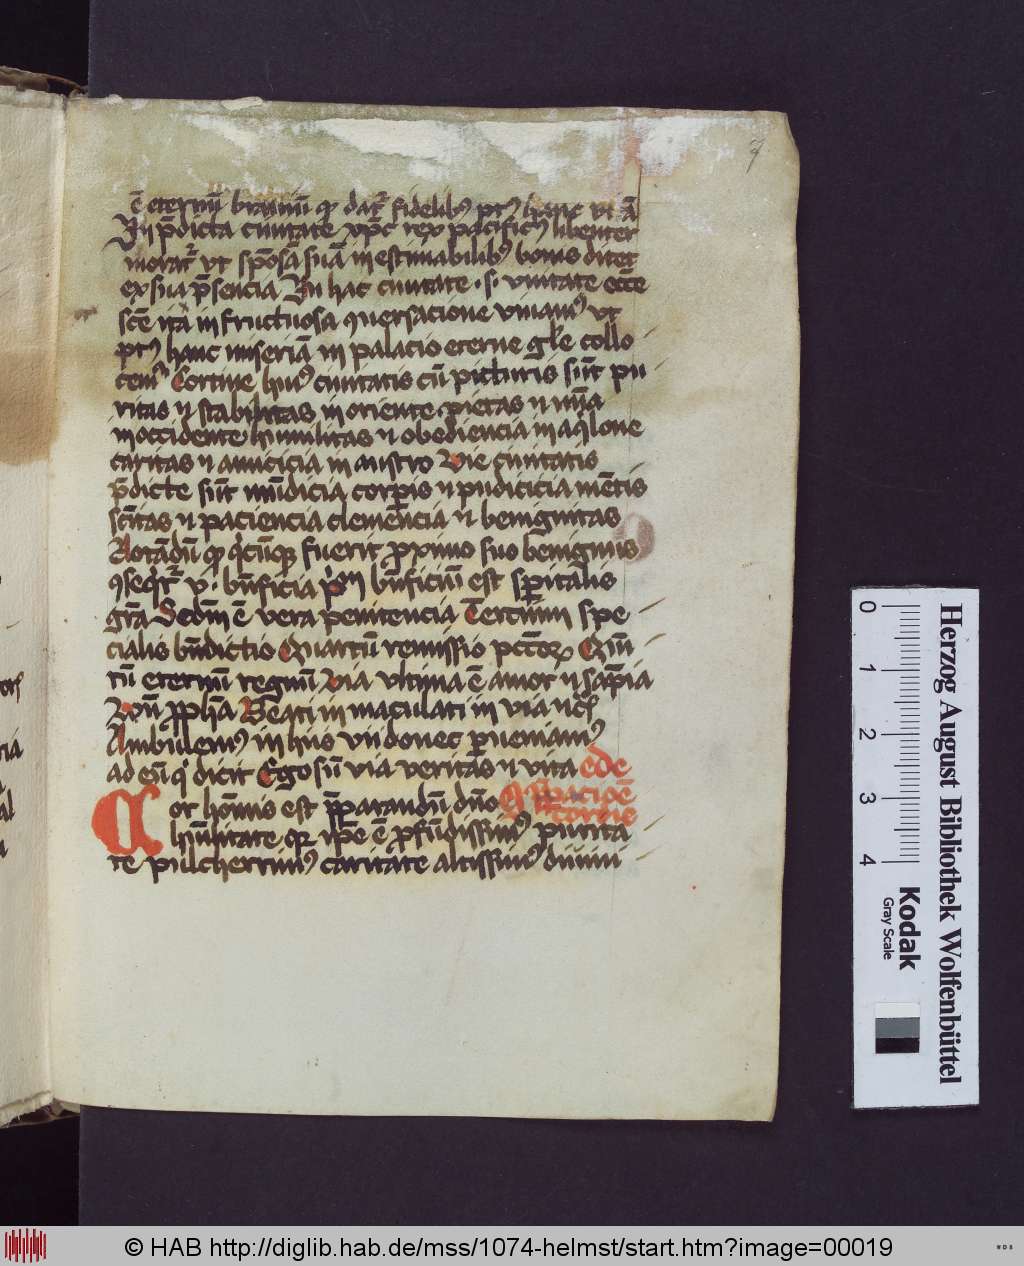 7
ē eternū bravīū qd datᷣ fidelibꝰ ptꝰ
In p̄dicta civitate xp̄c rex pacificꝰ libenter
moratᷣ ut spōsā suā inestimabilibꝰ bonis ditet
ex sua p̄sencia In hac civitate .s. unitate ecc̄e
sc̄e ita in fructuosa ꝯversacione vivamꝰ ut
ptꝰ hanc miseriā in palacio eterne gl̄e collo
cemꝰ Cortine huiꝰ civitatis cū picturis sūt pu
ritas ⁊ stabilitas in oriente pietas ⁊ mīa
in occidente humilitas ⁊ obediencia in aq̇lone
caritas ⁊ amicicia in austro Vie civitatis
p̄dicte sūt mūdicia corꝑis ⁊ pudicicia mētis
sc̄itas ⁊ paciencia clemēcia ⁊ benignitas
Notādū qd q̇cūqꝫ fuerit ꝓximo suo benignus
ꝯseq̇tᷣ v. bn̄ficia p̓m bn̄ficiū est sp̄italis
gr̄a Secdm̄ ē vera penitencia Terciū spe
cialis bn̄dictio Quartū remissio pctōꝝ Quī
tū eternū regnū Via ultima ē amor ⁊ sap̄ia
Vn̄ ꝓph̄a Beati inmaculati in via
Ambulemꝰ in hiis donec ꝑveniamꝰ
ad eū q̇ dicit Ego sū via veritas ⁊ vita
Cor hoīnis est p̄parandū dn̄o
hūilitate qꝛ ip̄e ē ꝓfūdissimꝰ purita
te pulcherrimꝰ caritate altissimꝰ
Herzog August Bibliothek Wolfenbüttel
0 1 2 3 4
Kodak
Gray Scale
© HAB http://diglib.hab.de/mss/1074-helmst/start.htm?image=00019